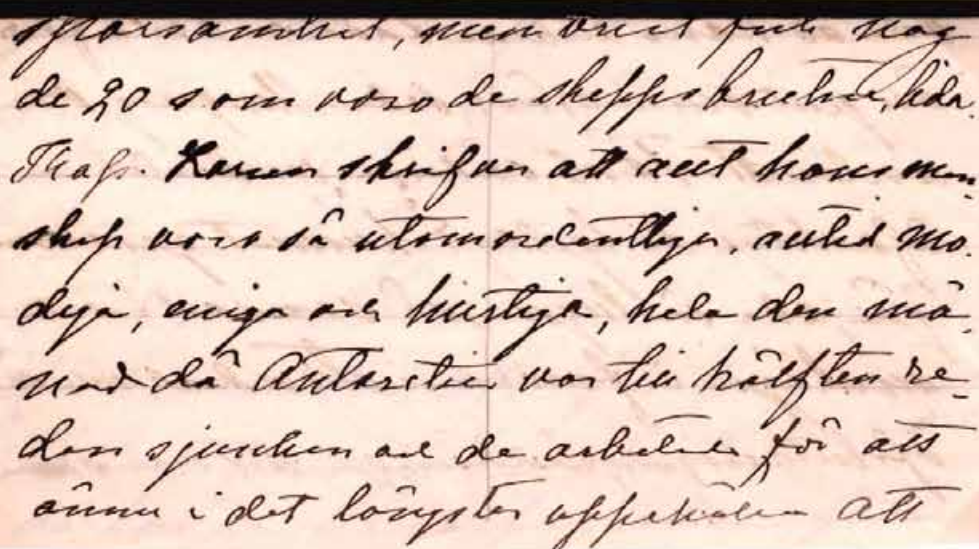 sparsamhet, men brist fick nog
de 20 som voro de skeppsbrutne, lida.
Kap. Larsen skrifver att allt hans man-
skap voro så utomordentliga, alltid mo-
diga, eniga och hurtiga, hela den må-
nad då Antarctic var till hälften re-
dan sjunken och de arbetade för att
ännu i det längsta uppehålla att